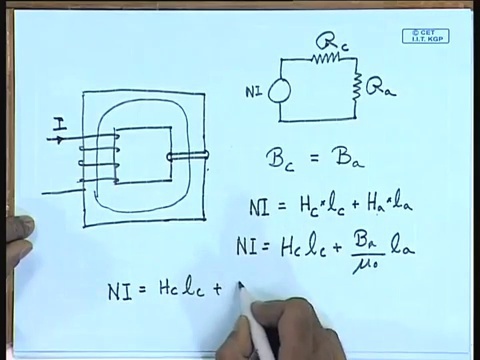 © CET
I.I.T. KGP
R_c
NI
R_a
I
B_c = B_a
NI = H_c * l_c + H_a * l_a
NI = H_c l_c + B_a/μ_0 l_a
NI = H_c l_c +